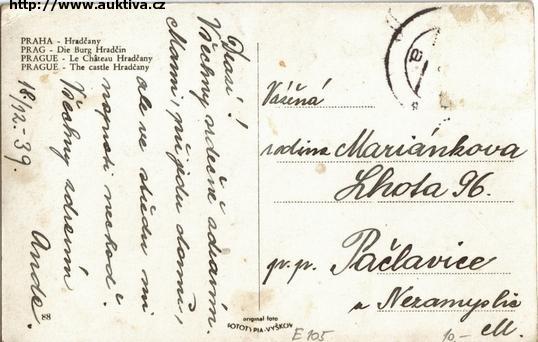 http://www.auktiva.cz
PRAHA - Hradčany
PRAG - Die Burg Hradčin
PRAGUE - Le Château Hradčany
PRAGUE - The castle Hradčany
Drazí!
Všechny srdečně zdravím.
Mami, přijedu domů,
ale ve středu mi
naproti nechoď.
Všechny zdravím
Anda.
18/12.-39.
88
Vážená
rodina Mariánkova
Lhota 96.
p.p. Pačlavice
u Nezamyslic
M.
original foto
FOTOTYPIA-VYŠKOV
E 105
10,-